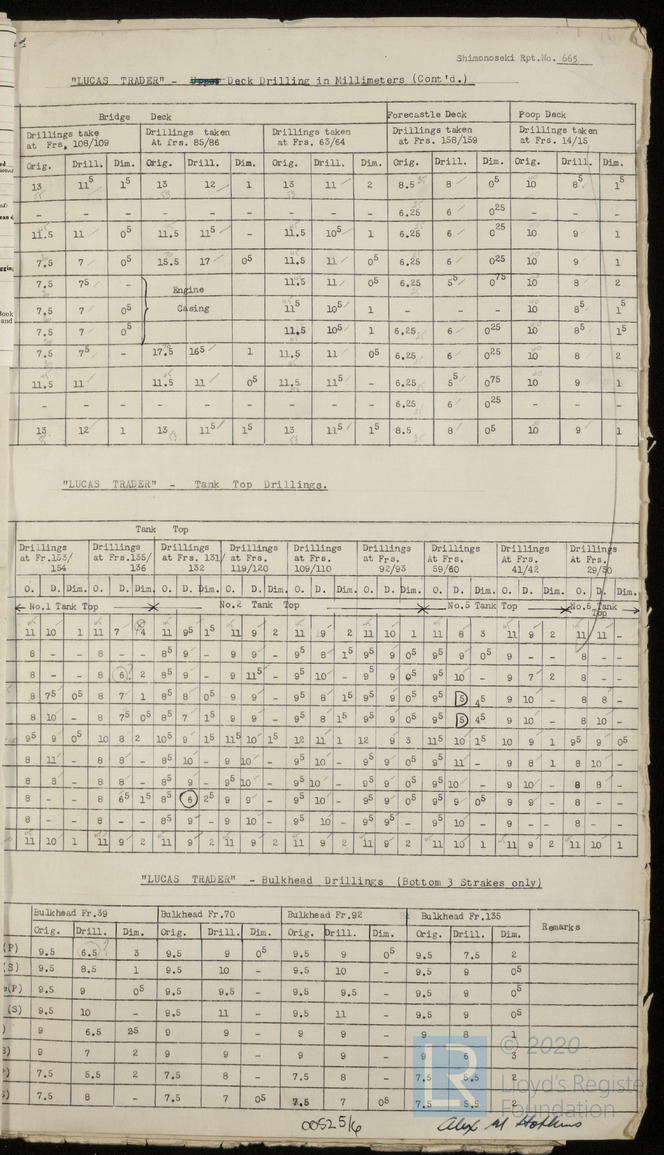 Shimonoseki Rpt.No. 665
"LUCAS TRADER" - Deck Drilling in Millimeters (Cont'd.)
Bridge Deck Forecastle Deck Poop Deck
Drillings take Drillings taken Drillings taken Drillings taken Drillings taken
at Frs, 108/109 At frs. 85/86 at Frs. 63/64 at Frs. 158/159 at Frs. 14/15
Orig. Drill. Dim. Orig. Drill. Dim. Orig. Drill. Dim. Orig. Drill. Dim. Orig. Drill. Dim.
13 11⁵ 1⁵ 13 12 1 13 11 2 8.5 8 0⁵ 10 8⁵ 1⁵
- - - - - - - - - 6.25 6 0²⁵ - - -
11.5 11 0⁵ 11.5 11⁵ - 11.5 10⁵ 1 6.25 6 0²⁵ 10 9 1
7.5 7 0⁵ 15.5 17 0⁵ 11.5 11 0⁵ 6.25 6 0²⁵ 10 9 1
7.5 7⁵ - Engine 11.5 11 0⁵ 6.25 5⁵ 0⁷⁵ 10 8 2
7.5 7 0⁵ Casing 11⁵ 10⁵ 1 - - - 10 8⁵ 1⁵
7.5 7 0⁵ 11.5 10⁵ 1 6.25 6 0²⁵ 10 8⁵ 1⁵
7.5 7⁵ - 17.5 16⁵ 1 11.5 11 0⁵ 6.25 6 0²⁵ 10 8 2
11.5 11 11.5 11 0⁵ 11.5 11⁵ - 6.25 5⁵ 0⁷⁵ 10 9 1
- - - - - - - - - 6.25 6 0²⁵ - - -
13 12 1 13 11⁵ 1⁵ 13 11⁵ 1⁵ 8.5 8 0⁵ 10 9 1
"LUCAS TRADER" - Tank Top Drillings.
Tank Top
Drillings Drillings Drillings Drillings Drillings Drillings Drillings Drillings Drillings
at Fr.153/ at Frs.135/ at Frs. 131/ at Frs. at Frs. at Frs. At Frs. At Frs. At Frs.
154 136 132 119/120 109/110 92/93 59/60 41/42 29/30
O. D. Dim. O. D. Dim. O. D. Dim. O. D. Dim. O. D. Dim. O. D. Dim. O. D. Dim. O. D. Dim. O. D. Dim.
No.1 Tank Top No.2 Tank Top No.5 Tank Top No.6 Tank Top
11 10 1 11 7 4 11 9⁵ 1⁵ 11 9 2 11 9 2 11 10 1 11 8 3 11 9 2 11 11 -
8 - - 8 - - 8⁵ 9 - 9 9 - 9⁵ 8 1⁵ 9⁵ 9 0⁵ 9⁵ 9 0⁵ 9 - - 8 -
8 - - 8 6? 2 8⁵ 9 - 9 11⁵ - 9⁵ 10 - 9⁵ 9 0⁵ 9⁵ 10 - 9 7 2 8 -
8 7⁵ 0⁵ 8 7 1 8⁵ 8 0⁵ 9 9 - 9⁵ 8 1⁵ 9⁵ 9 0⁵ 9⁵ 5 4⁵ 9 10 - 8 8 -
8 10 - 8 7⁵ 0⁵ 8⁵ 7 1⁵ 9 9 - 9⁵ 8 1⁵ 9⁵ 9 0⁵ 9⁵ 5 4⁵ 9 10 - 8 10 -
9⁵ 9 0⁵ 10 8 2 10⁵ 9 1⁵ 11⁵ 10 1⁵ 12 11 1 12 9 3 11⁵ 10 1⁵ 10 9 1 9⁵ 9 0⁵
8 11 - 8 8 - 8⁵ 10 - 9 10 - 9⁵ 10 - 9⁵ 9 0⁵ 9⁵ 11 - 9 8 1 8 10 -
8 8 - 8 8 - 8⁵ 9 - 9⁵ 10 - 9⁵ 10 - 9⁵ 9 0⁵ 9⁵ 10 - 9 10 - 8 8 -
8 - - 8 6⁵ 1⁵ 8⁵ 6 2⁵ 9 9 - 9⁵ 10 - 9⁵ 9 0⁵ 9⁵ 9 0⁵ 9 9 - 8 - -
8 - - 8 - - 8⁵ 9 - 9 10 - 9⁵ 10 - 9⁵ 9⁵ - 9⁵ 10 - 9 10 - 8 - -
11 10 1 11 9 2 11 9 2 11 9 2 11 9 2 11 9 2 11 10 1 11 9 2 11 10 1
"LUCAS TRADER" - Bulkhead Drillings (Bottom 3 Strakes only)
Bulkhead Fr.39 Bulkhead Fr.70 Bulkhead Fr.92 Bulkhead Fr.135
Orig. Drill. Dim. Orig. Drill. Dim. Orig. Drill. Dim. Orig. Drill. Dim. Remarks
(P) 9.5 6.5? 3 9.5 9 0⁵ 9.5 9 0⁵ 9.5 7.5 2
(S) 9.5 8.5 1 9.5 10 - 9.5 10 - 9.5 9 0⁵
(P) 9.5 9 0⁵ 9.5 9.5 - 9.5 9.5 - 9.5 9 0⁵
(S) 9.5 10 - 9.5 11 - 9.5 11 - 9.5 9 0⁵
) 9 6.5 25 9 9 - 9 9 - 9 8 1
) 9 7 2 9 9 - 9 9 - 9 6 3
) 7.5 5.5 2 7.5 8 - 7.5 8 - 7.5 5.5 2
) 7.5 8 - 7.5 7 0⁵ 7.5 7 0⁵ 7.5 5.5 2
© 2020
LR
Lloyd's Register
Foundation
Alex M Hopkins